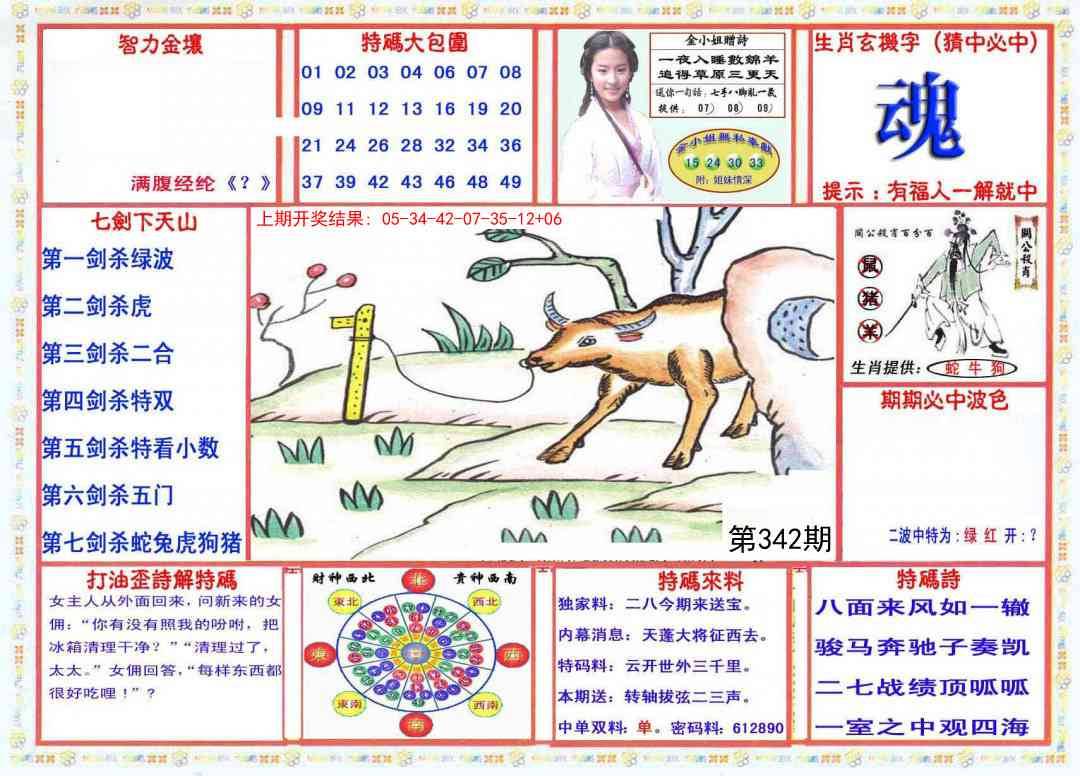 智力金壤
满腹经纶《？》
特碼大包圍
01 02 03 04 06 07 08
09 11 12 13 16 19 20
21 24 26 28 32 34 36
37 39 42 43 46 48 49
金小姐贈詩
一夜入睡數錦羊
追得草原三更天
送你一句話：七手八脚亂一氣
提供：07） 08） 09）
15 24 30 33
附：姐妹情深
生肖玄機字（猜中必中）
魂
提示：有福人一解就中
七劍下天山
第一剑杀绿波
第二剑杀虎
第三剑杀二合
第四剑杀特双
第五剑杀特看小数
第六剑杀五门
第七剑杀蛇兔虎狗猪
上期开奖结果：05-34-42-07-35-12+06
第342期
關公殺肖百分百
關公殺肖
鼠
猪
羊
生肖提供：蛇 牛 狗
期期必中波色
二波中特为：绿 红 开：？
打油歪詩解特碼
女主人从外面回来，问新来的女
佣：“你有没有照我的吩咐，把
冰箱清理干净？”“清理过了，
太太。”女佣回答，“每样东西都
很好吃哩！”？
财神西北 貴神西南
北
東北
西北
東
西
東南
西南
南
特碼來料
独家料：二八今期来送宝。
内幕消息：天蓬大将征西去。
特码料：云开世外三千里。
本期送：转轴拔弦二三声。
中单双料：单。密码料：612890
特碼詩
八面来风如一辙
骏马奔驰子奏凯
二七战绩顶呱呱
一室之中观四海